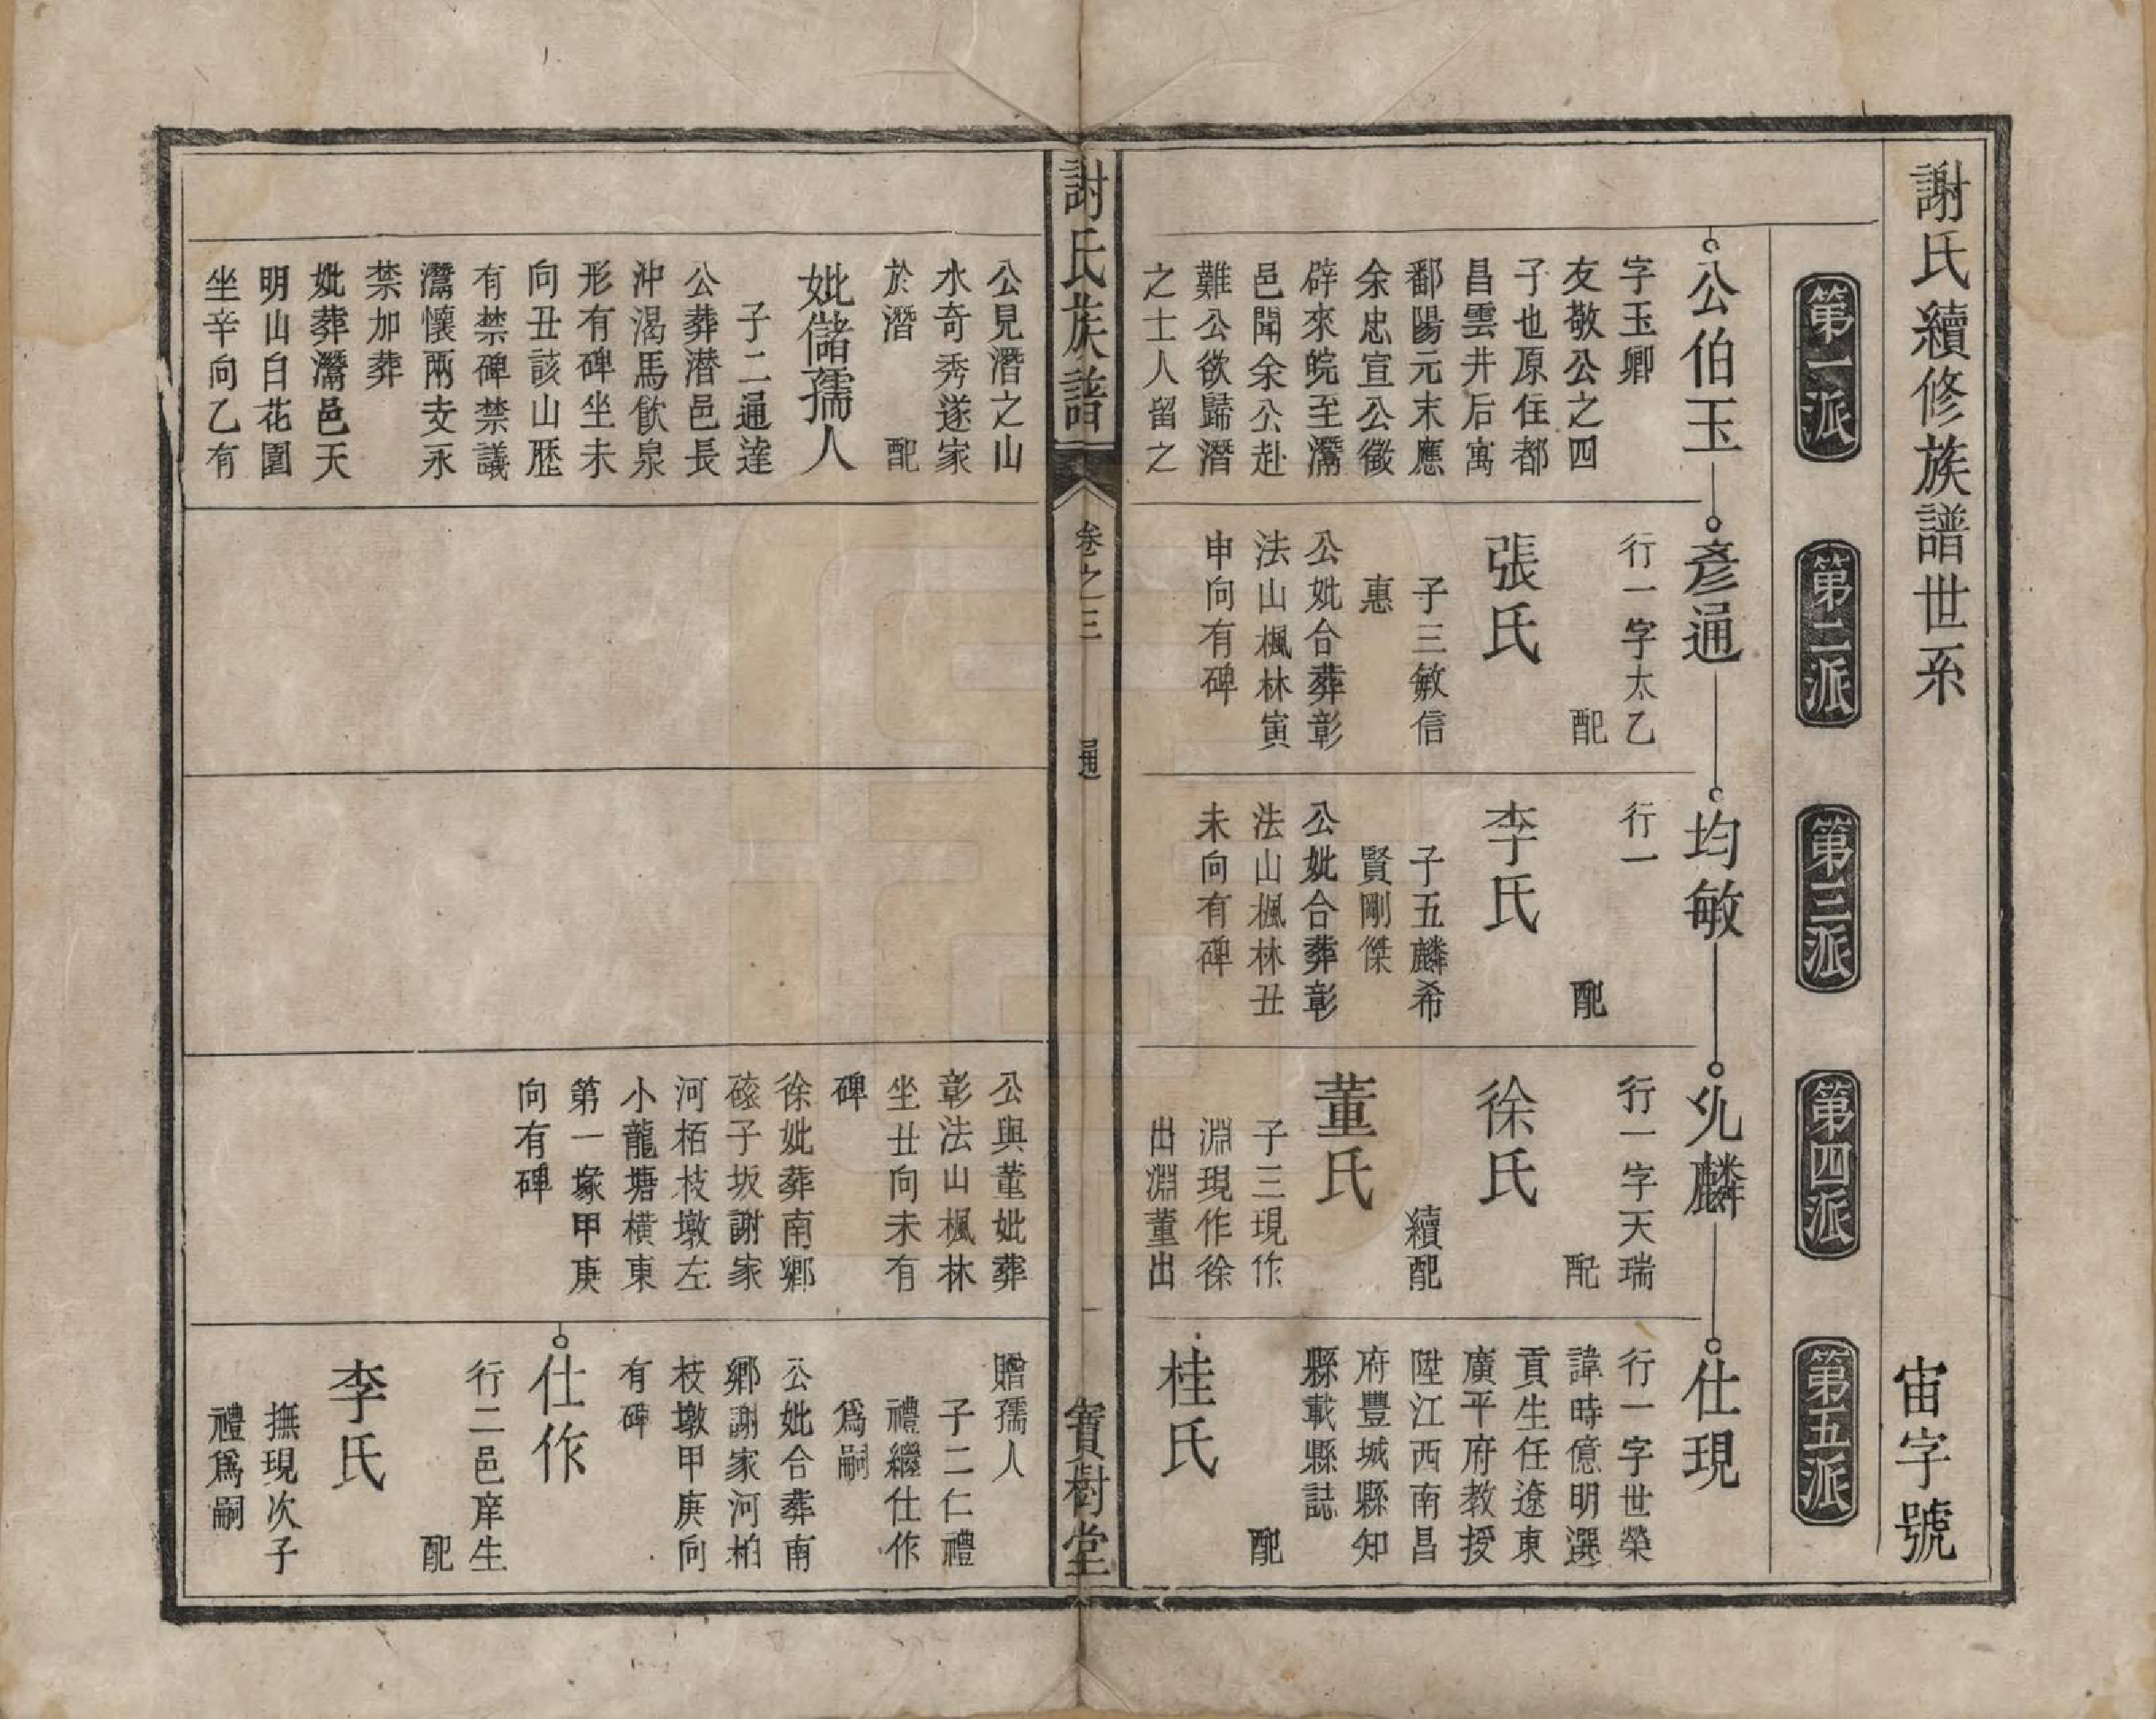 謝氏續修族譜世系
宙字號
第一派
第二派
第三派
第四派
第五派
公伯玉
字玉卿
友敬公之四
子也原住都
昌雲井后寓
鄱陽元末應
余忠宣公徵
辟來皖至灊
邑聞余公赴
難公欲歸潛
之士人留之
彥通
行一字太乙
配
張氏
子三敏信
惠
公妣合葬彰
法山楓林寅
申向有碑
均敏
行一
配
李氏
子五麟希
賢剛傑
公妣合葬彰
法山楓林丑
未向有碑
允麟
行一字天瑞
配
徐氏
續配
董氏
子三現作
淵現作徐
出淵董出
仕現
行一字世榮
諱時億明選
貢生任遼東
廣平府教授
陞江西南昌
府豐城縣知
縣載縣誌
配
桂氏
謝氏族譜
卷之三
通
一
寶樹堂
公見潛之山
水奇秀遂家
於潛
配
妣儲孺人
子二通達
公葬潛邑長
沖渴馬飲泉
形有碑坐未
向丑該山歷
有禁碑禁議
灊懷兩支永
禁加葬
妣葬灊邑天
明山白花園
坐辛向乙有
公與董妣葬
彰法山楓林
坐丑向未有
碑
徐妣葬南鄉
磙子坂謝家
河栢枝墩左
小龍塘橫東
第一塚甲庚
向有碑
贈孺人
子二仁禮
禮繼仕作
爲嗣
公妣合葬南
鄉謝家河柏
枝墩甲庚向
有碑
仕作
行二邑庠生
配
李氏
撫現次子
禮爲嗣